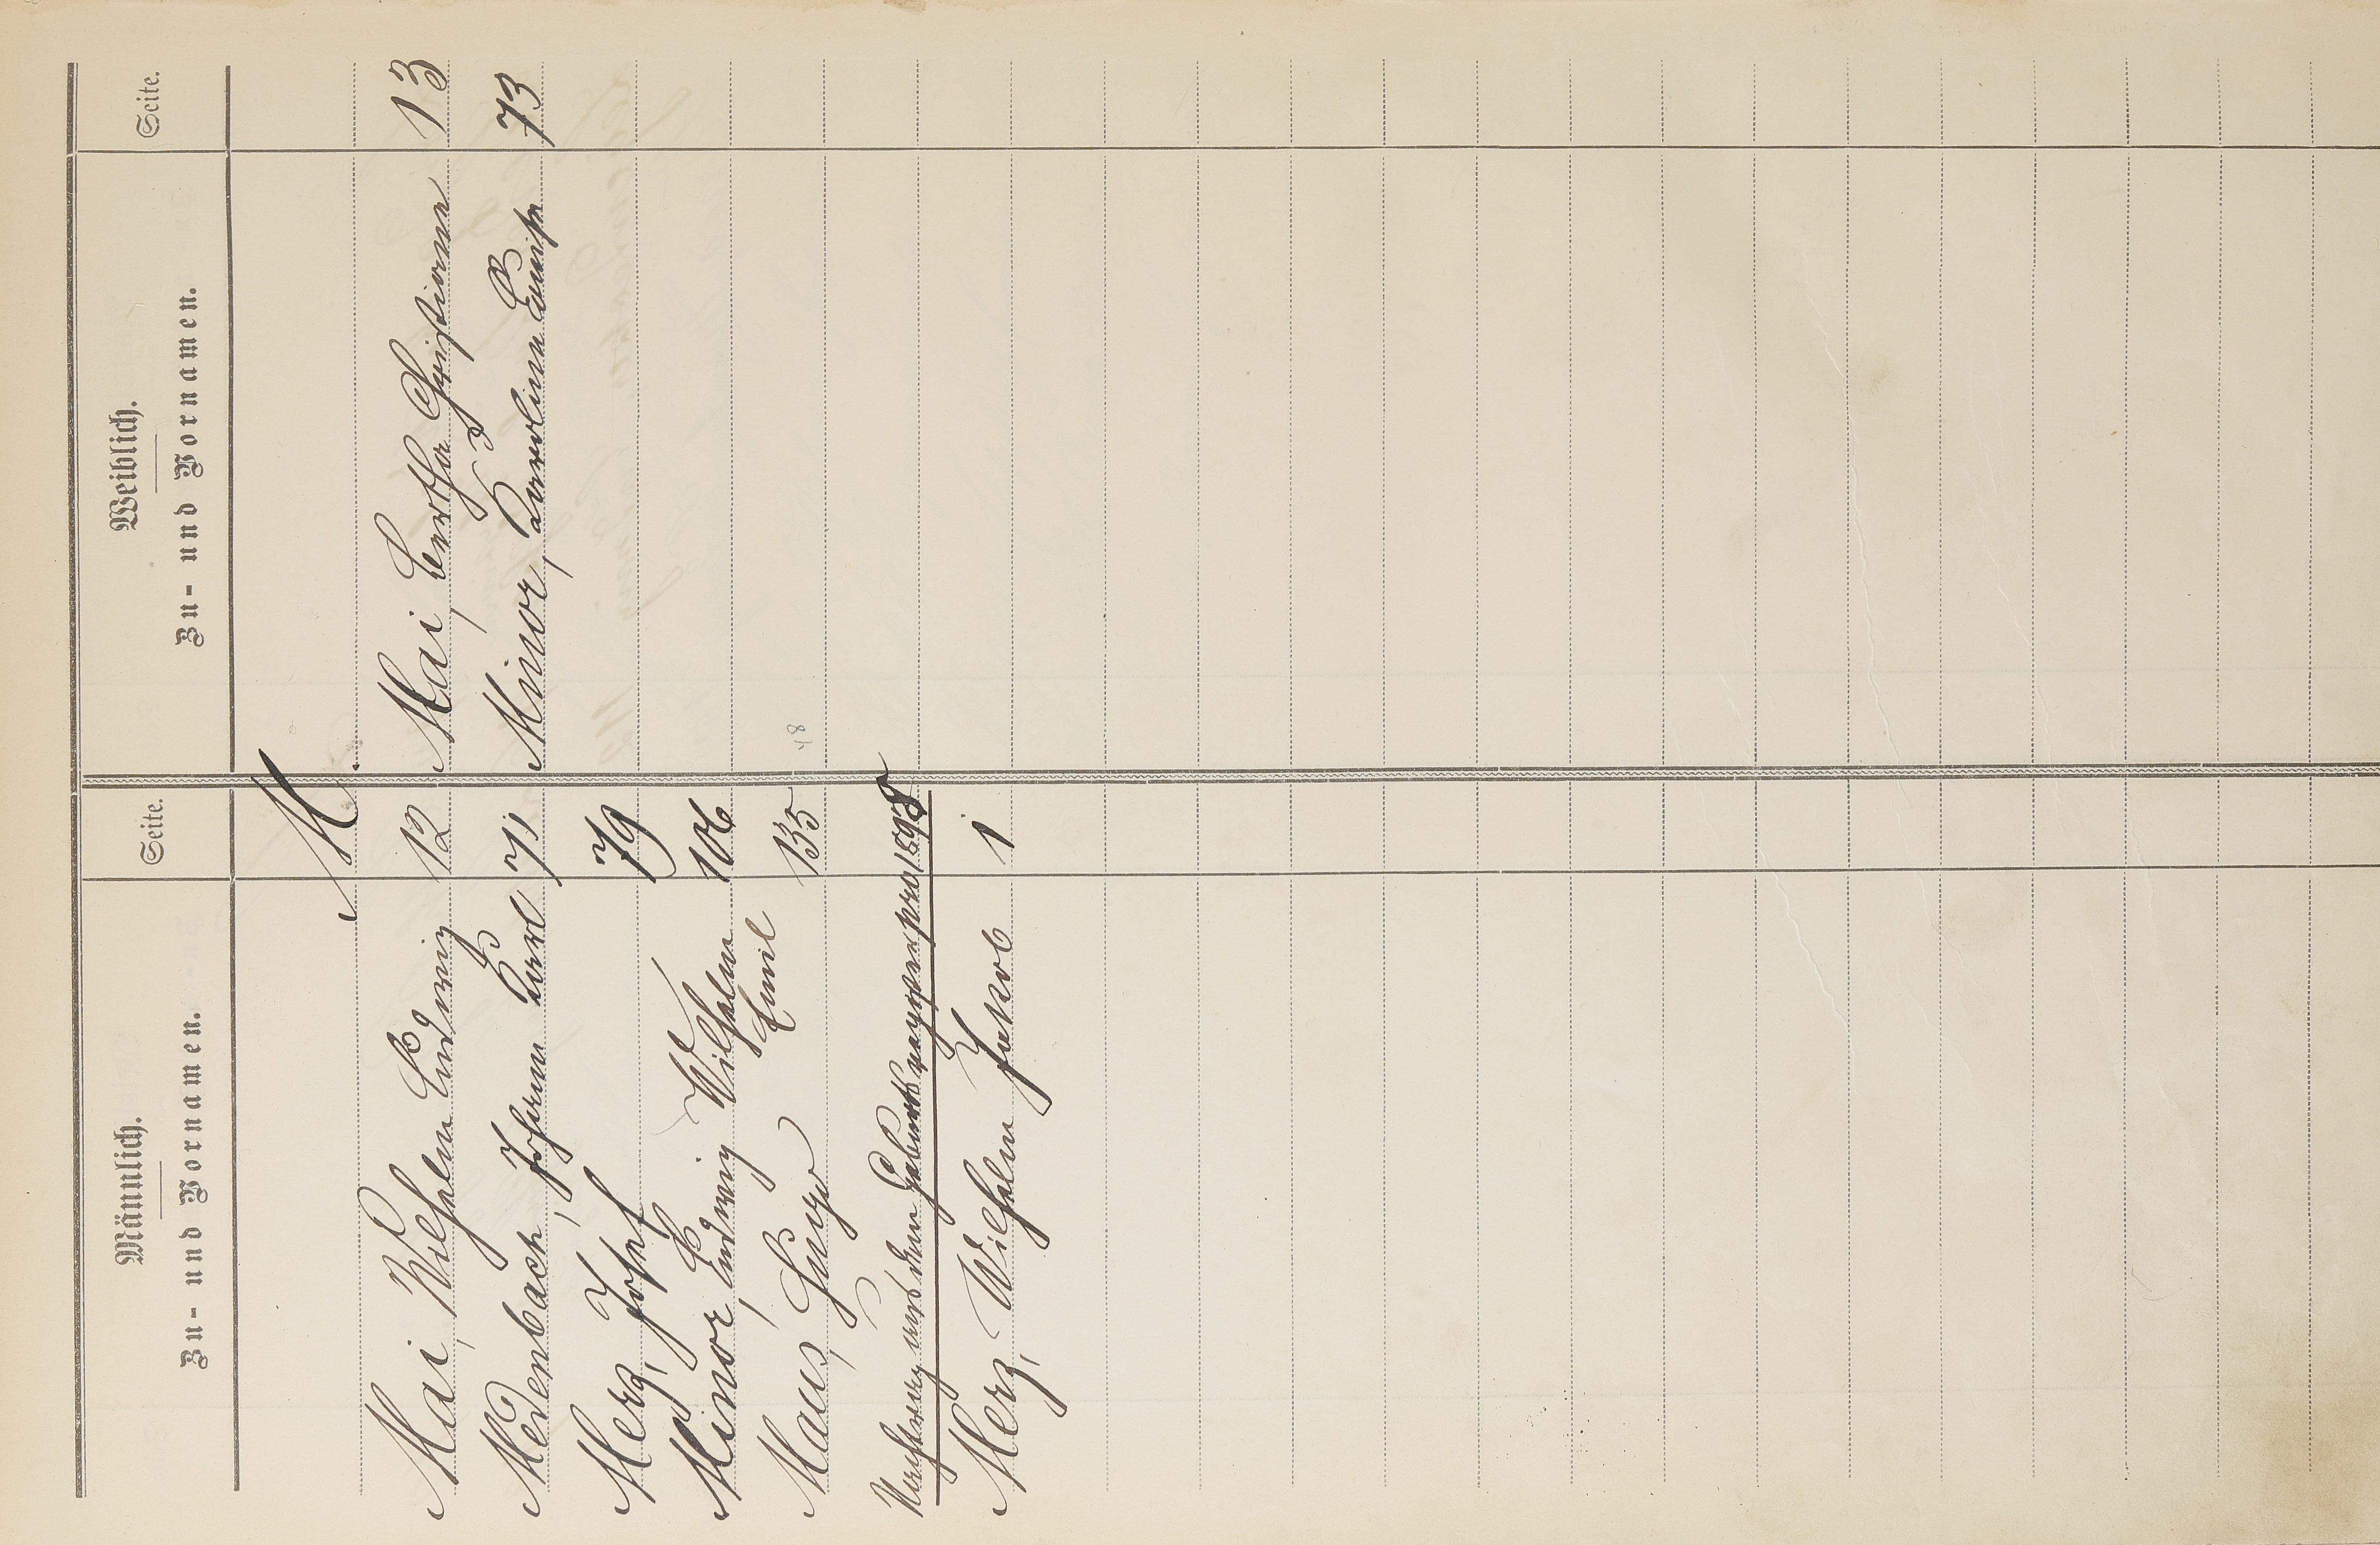 Männlich.
Zu- und Vornamen.
Seite.
Weiblich.
Zu- und Vornamen.
Seite.
M
Mai, Wilhelm Ludwig 12
Medenbach, Johann Karl 71
Merz, Josef 79
Minor, Ludwig Wilhelm 106
Maus, Hugo Emil 135
Nachtrag aus dem Geburtsregister pro 1898
Merz, Wilhelm Jakob 1
Mai, Bertha Christiane 13
Minor, Karoline Luise 73
48